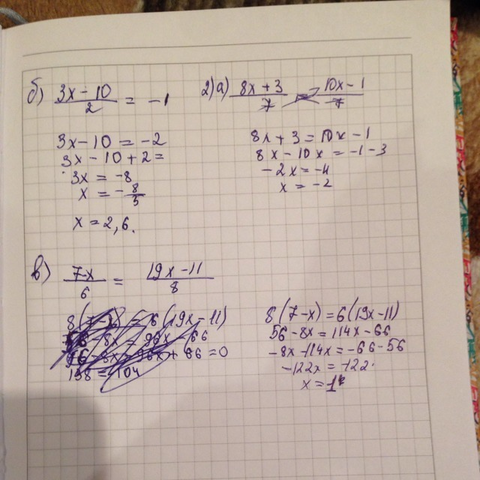 б) (3x-10)/2 = -1
3x-10 = -2
3x-10+2=
3x = -8
x = -8/3
x = 2,6.
2)a) (8x+3)/7 = (10x-1)/7
8x+3 = 10x-1
8x-10x = -1-3
-2x = -4
x = -2
в) (7-x)/6 = (19x-11)/8
8(7-x) = 6(19x-11)
56-8x = 114x-66
-8x-114x = -66-56
-122x = -122
x = 1